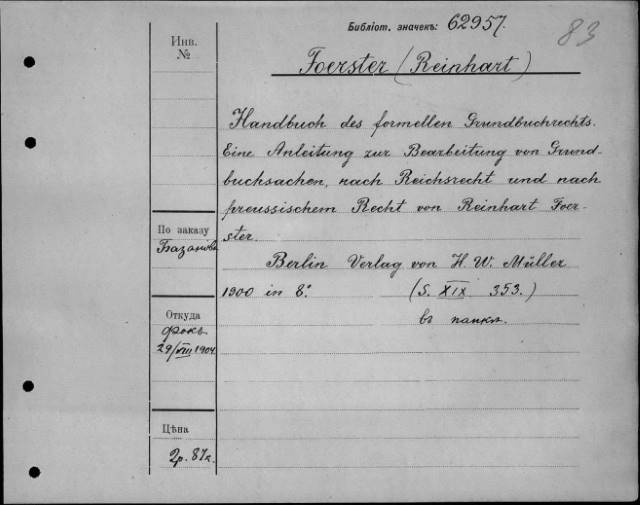 Библіот. значекъ: 62957.
83
Инв.
№
Foerster (Reinhart)
Handbuch des formellen Grundbuchrechts.
Eine Anleitung zur Bearbeitung von Grund-
buchsachen, nach Reichsrecht und nach
preussischem Recht von Reinhart Foer-
ster.
Berlin Verlag von H. W. Müller
1900 in 8.°
(S. XIX 353.)
въ папкѣ.
По заказу
Базанова
Откуда
Фокъ
29/VIII 1904
Цѣна
2р. 87к.